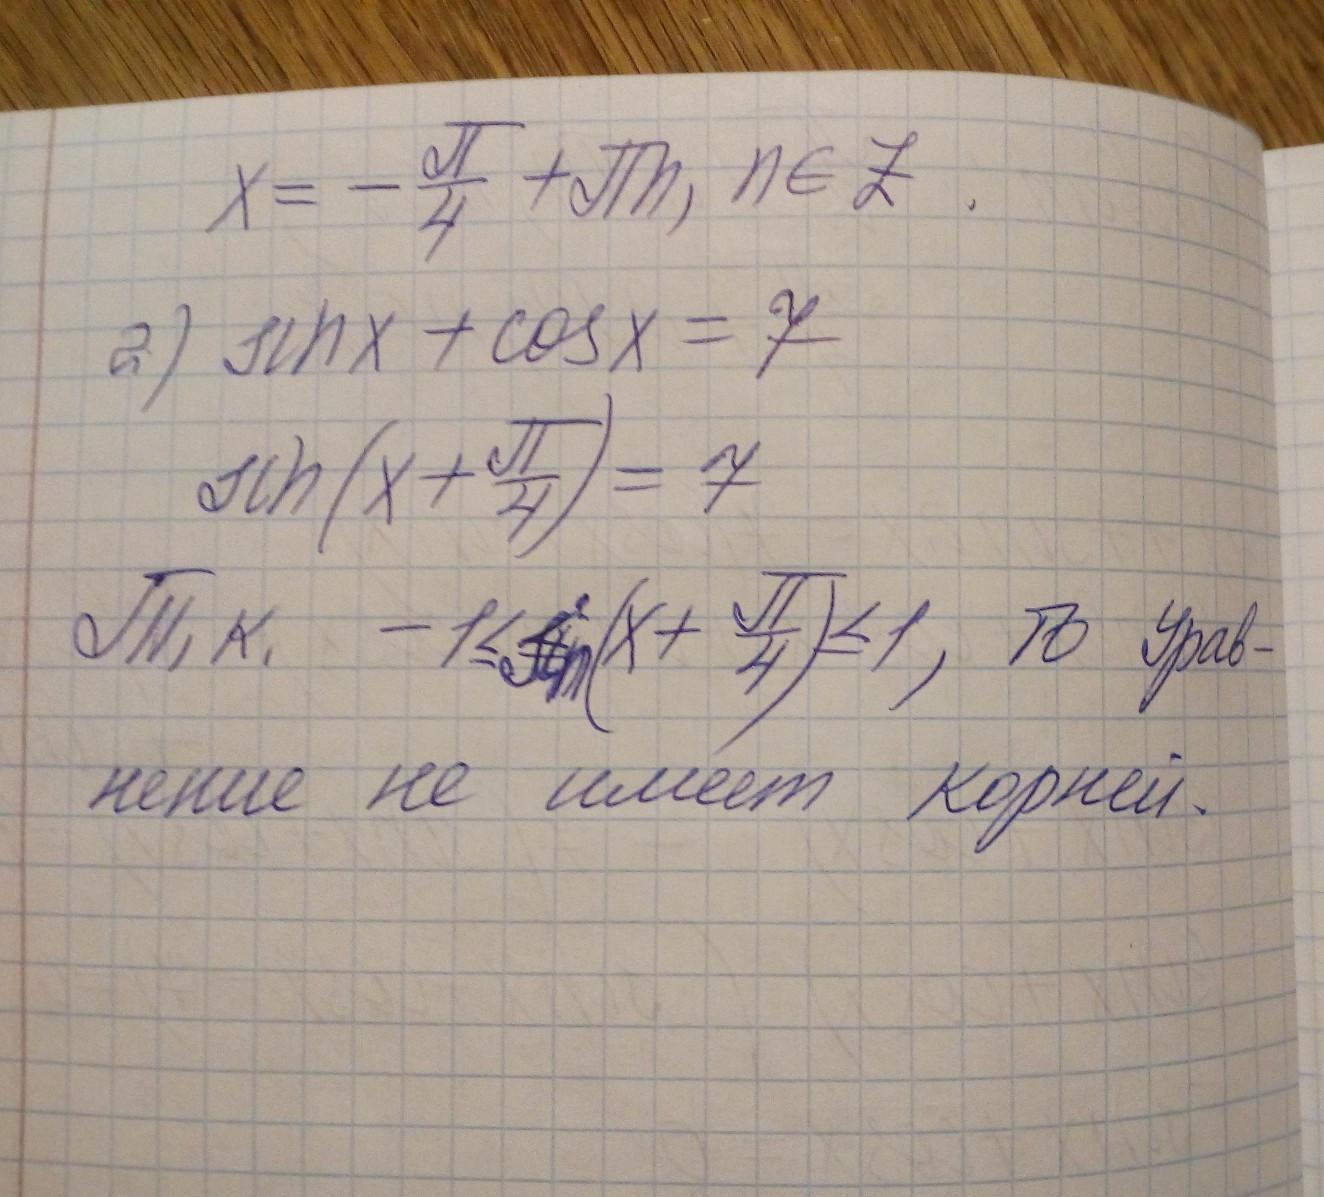 x = -π/4 + πn, n ∈ Z.
г) sin x + cos x = 7
sin(x + π/4) = 7
Т.к. -1 ≤ sin(x + π/4) ≤ 1, то урав-
нение не имеет корней.